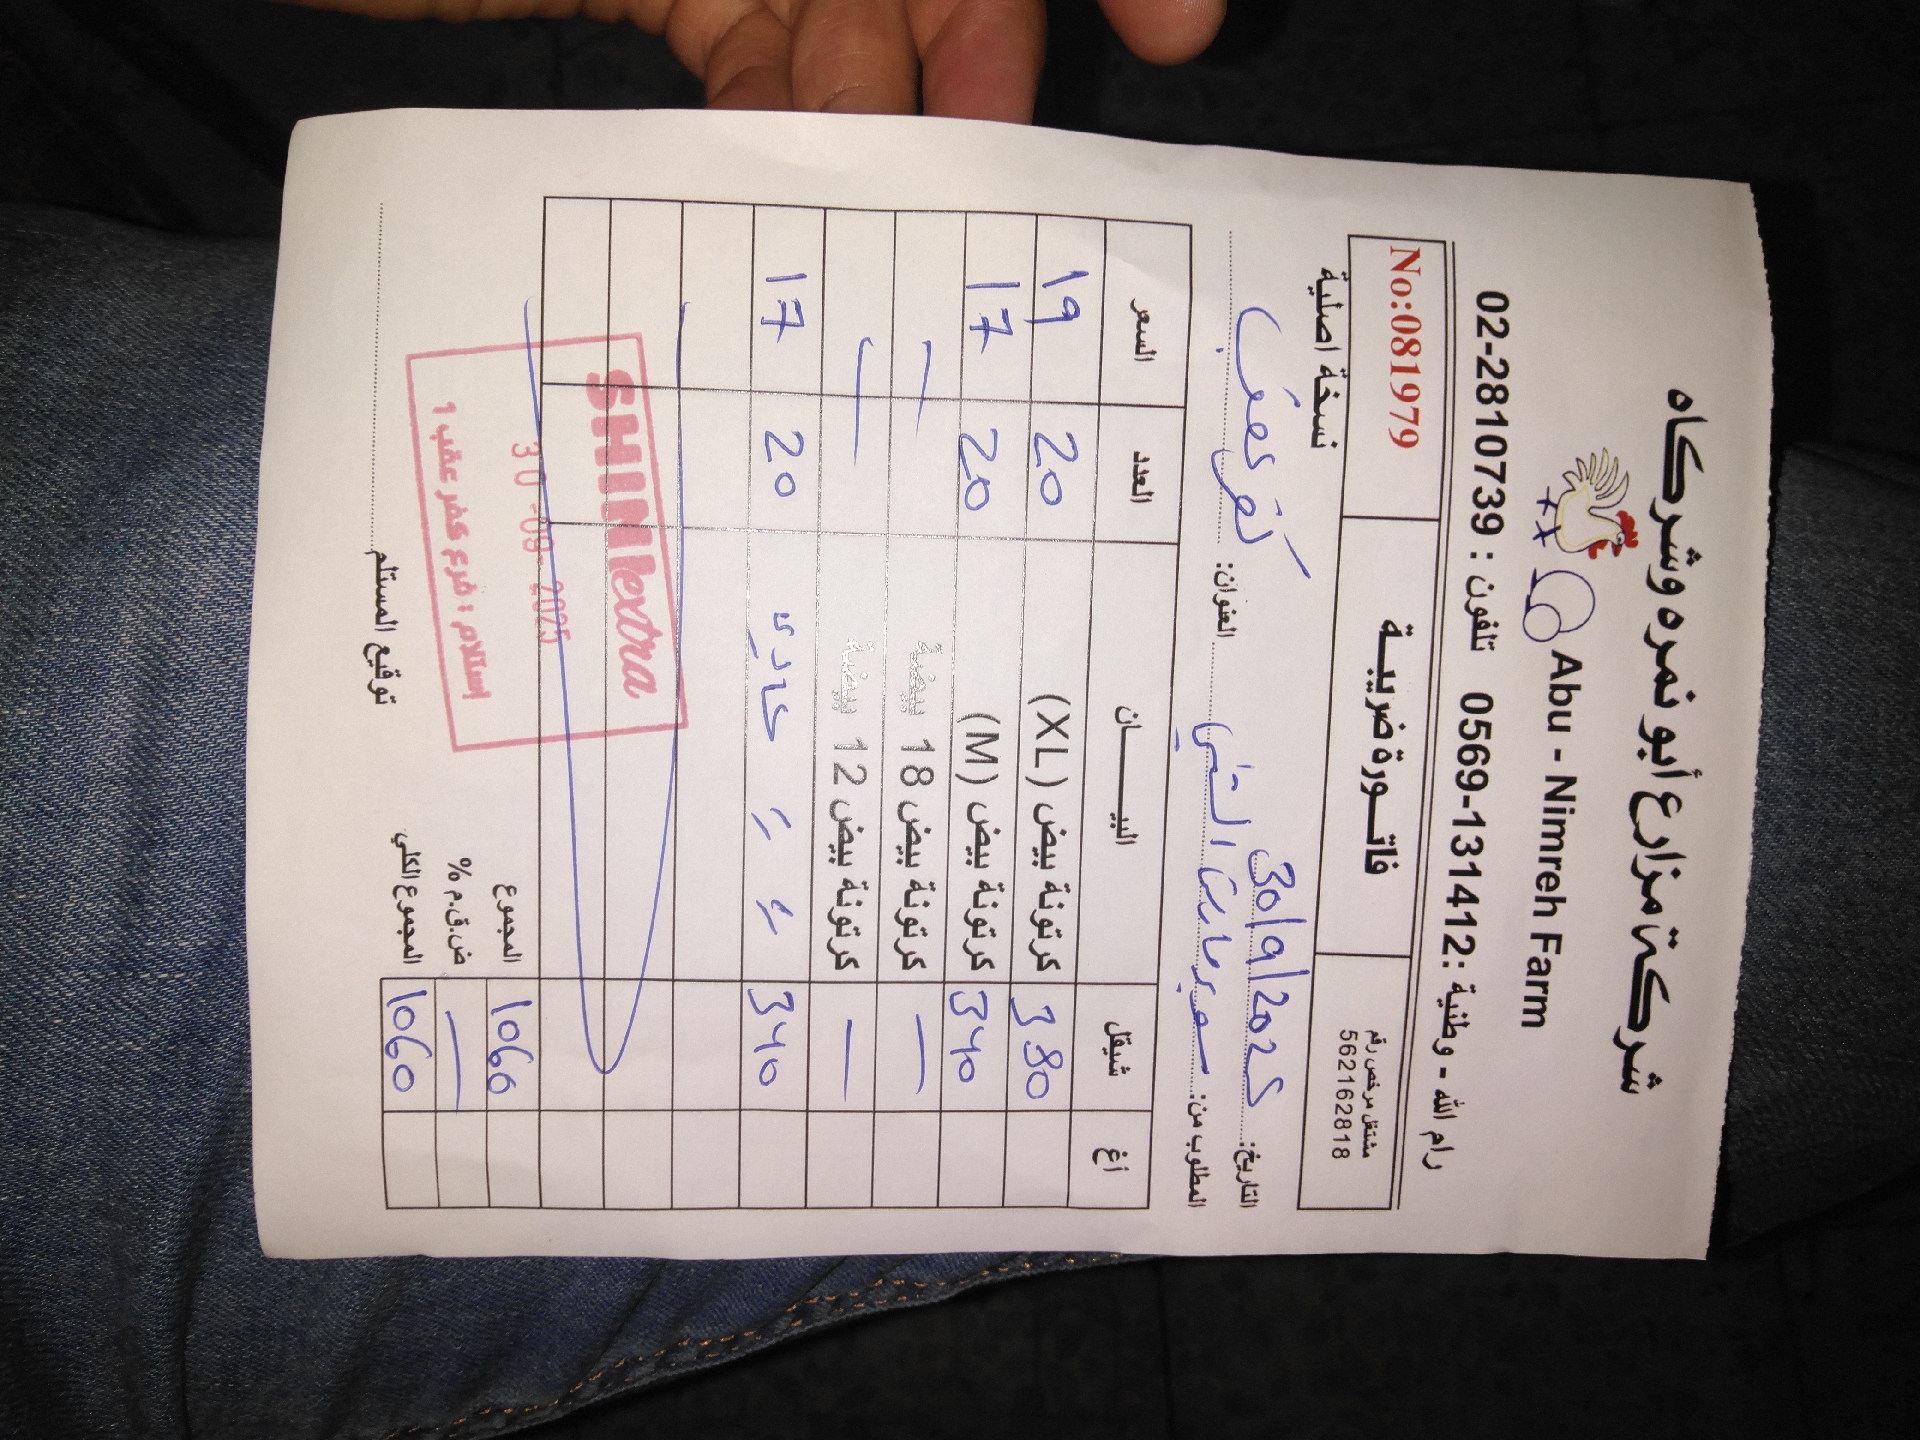 شركة مزارع أبو نمره وشركاه
Abu - Nimreh Farm
رام الله - وطنية : 0569-131412 تلفون : 02-2810739
مشتغل مرخص رقم
562162818
فاتـــورة ضريبـــة
No:081979
نسخة اصلية
التاريخ: 30/9/2025
المطلوب من: سوبر ماركت الشني العنوان: كفر عقب
أغ شيقل البيـــــــان العدد السعر
380 كرتونة بيض (XL) 20 19
340 كرتونة بيض (M) 20 17
— كرتونة بيض 18 بيضة —
— كرتونة بيض 12 بيضة —
340 〃 〃 عادي 20 17
SHINIextra
30-09-2025
إستلام : فرع كفر عقب 1
المجموع 1060
ض.ق.م % —
المجموع الكلي 1060
توقيع المستلم